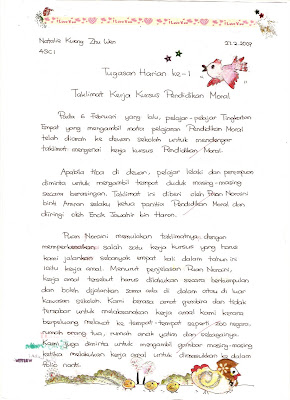 Natalie Kwong Zhu Wen
4SC1
21.2.2009
Tugasan Harian ke-1
Taklimat Kerja Kursus Pendidikan Moral
Pada 6 Februari yang lalu, pelajar-pelajar Tingkatan
Empat yang mengambil mata pelajaran Pendidikan Moral
telah diarah ke dewan sekolah untuk mendengar
taklimat mengenai kerja kursus Pendidikan Moral.
Apabila tiba di dewan, pelajar lelaki dan perempuan
diminta untuk mengambil tempat duduk masing-masing
secara berasingan. Taklimat ini diberi oleh Puan Noraini
binti Amran selaku ketua panitia Pendidikan Moral dan
diiringi oleh Encik Jawahir bin Haron.
Puan Noraini memulakan taklimatnya dengan
memperkenalkan salah satu kerja kursus yang harus
kami jalankan sebanyak empat kali dalam tahun ini
iaitu kerja amal. Menurut penjelasan Puan Noraini,
kerja amal tersebut harus dilakukan secara berkumpulan
dan boleh dijalankan sama ada di dalam atau di luar
kawasan sekolah. Kami berasa amat gembira dan tidak
tersabar untuk melaksanakan kerja amal kami kerana
berpeluang melawat ke tempat-tempat seperti zoo negara,
rumah orang tua, rumah anak yatim dan sebagainya.
Kami juga diminta untuk mengambil gambar masing-masing
ketika melakukan kerja amal untuk dimasukkan ke dalam
folio nanti.